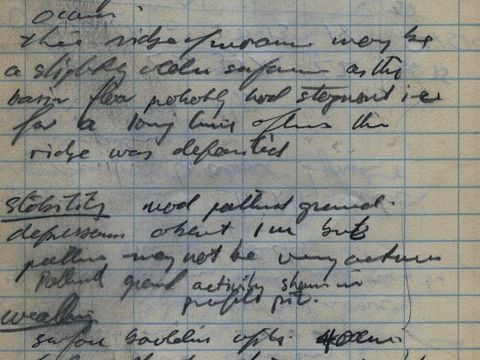 occurs
this ridge of moraine may be
a slightly older surface as the
basin floor probably had stagnant ice
for a long time after the
ridge was deposited
stability mod patterned ground.
depressions about 1m but
pattern may not be very active
Patterned ground activity shown in
profile pit.
weathering
surface boulders